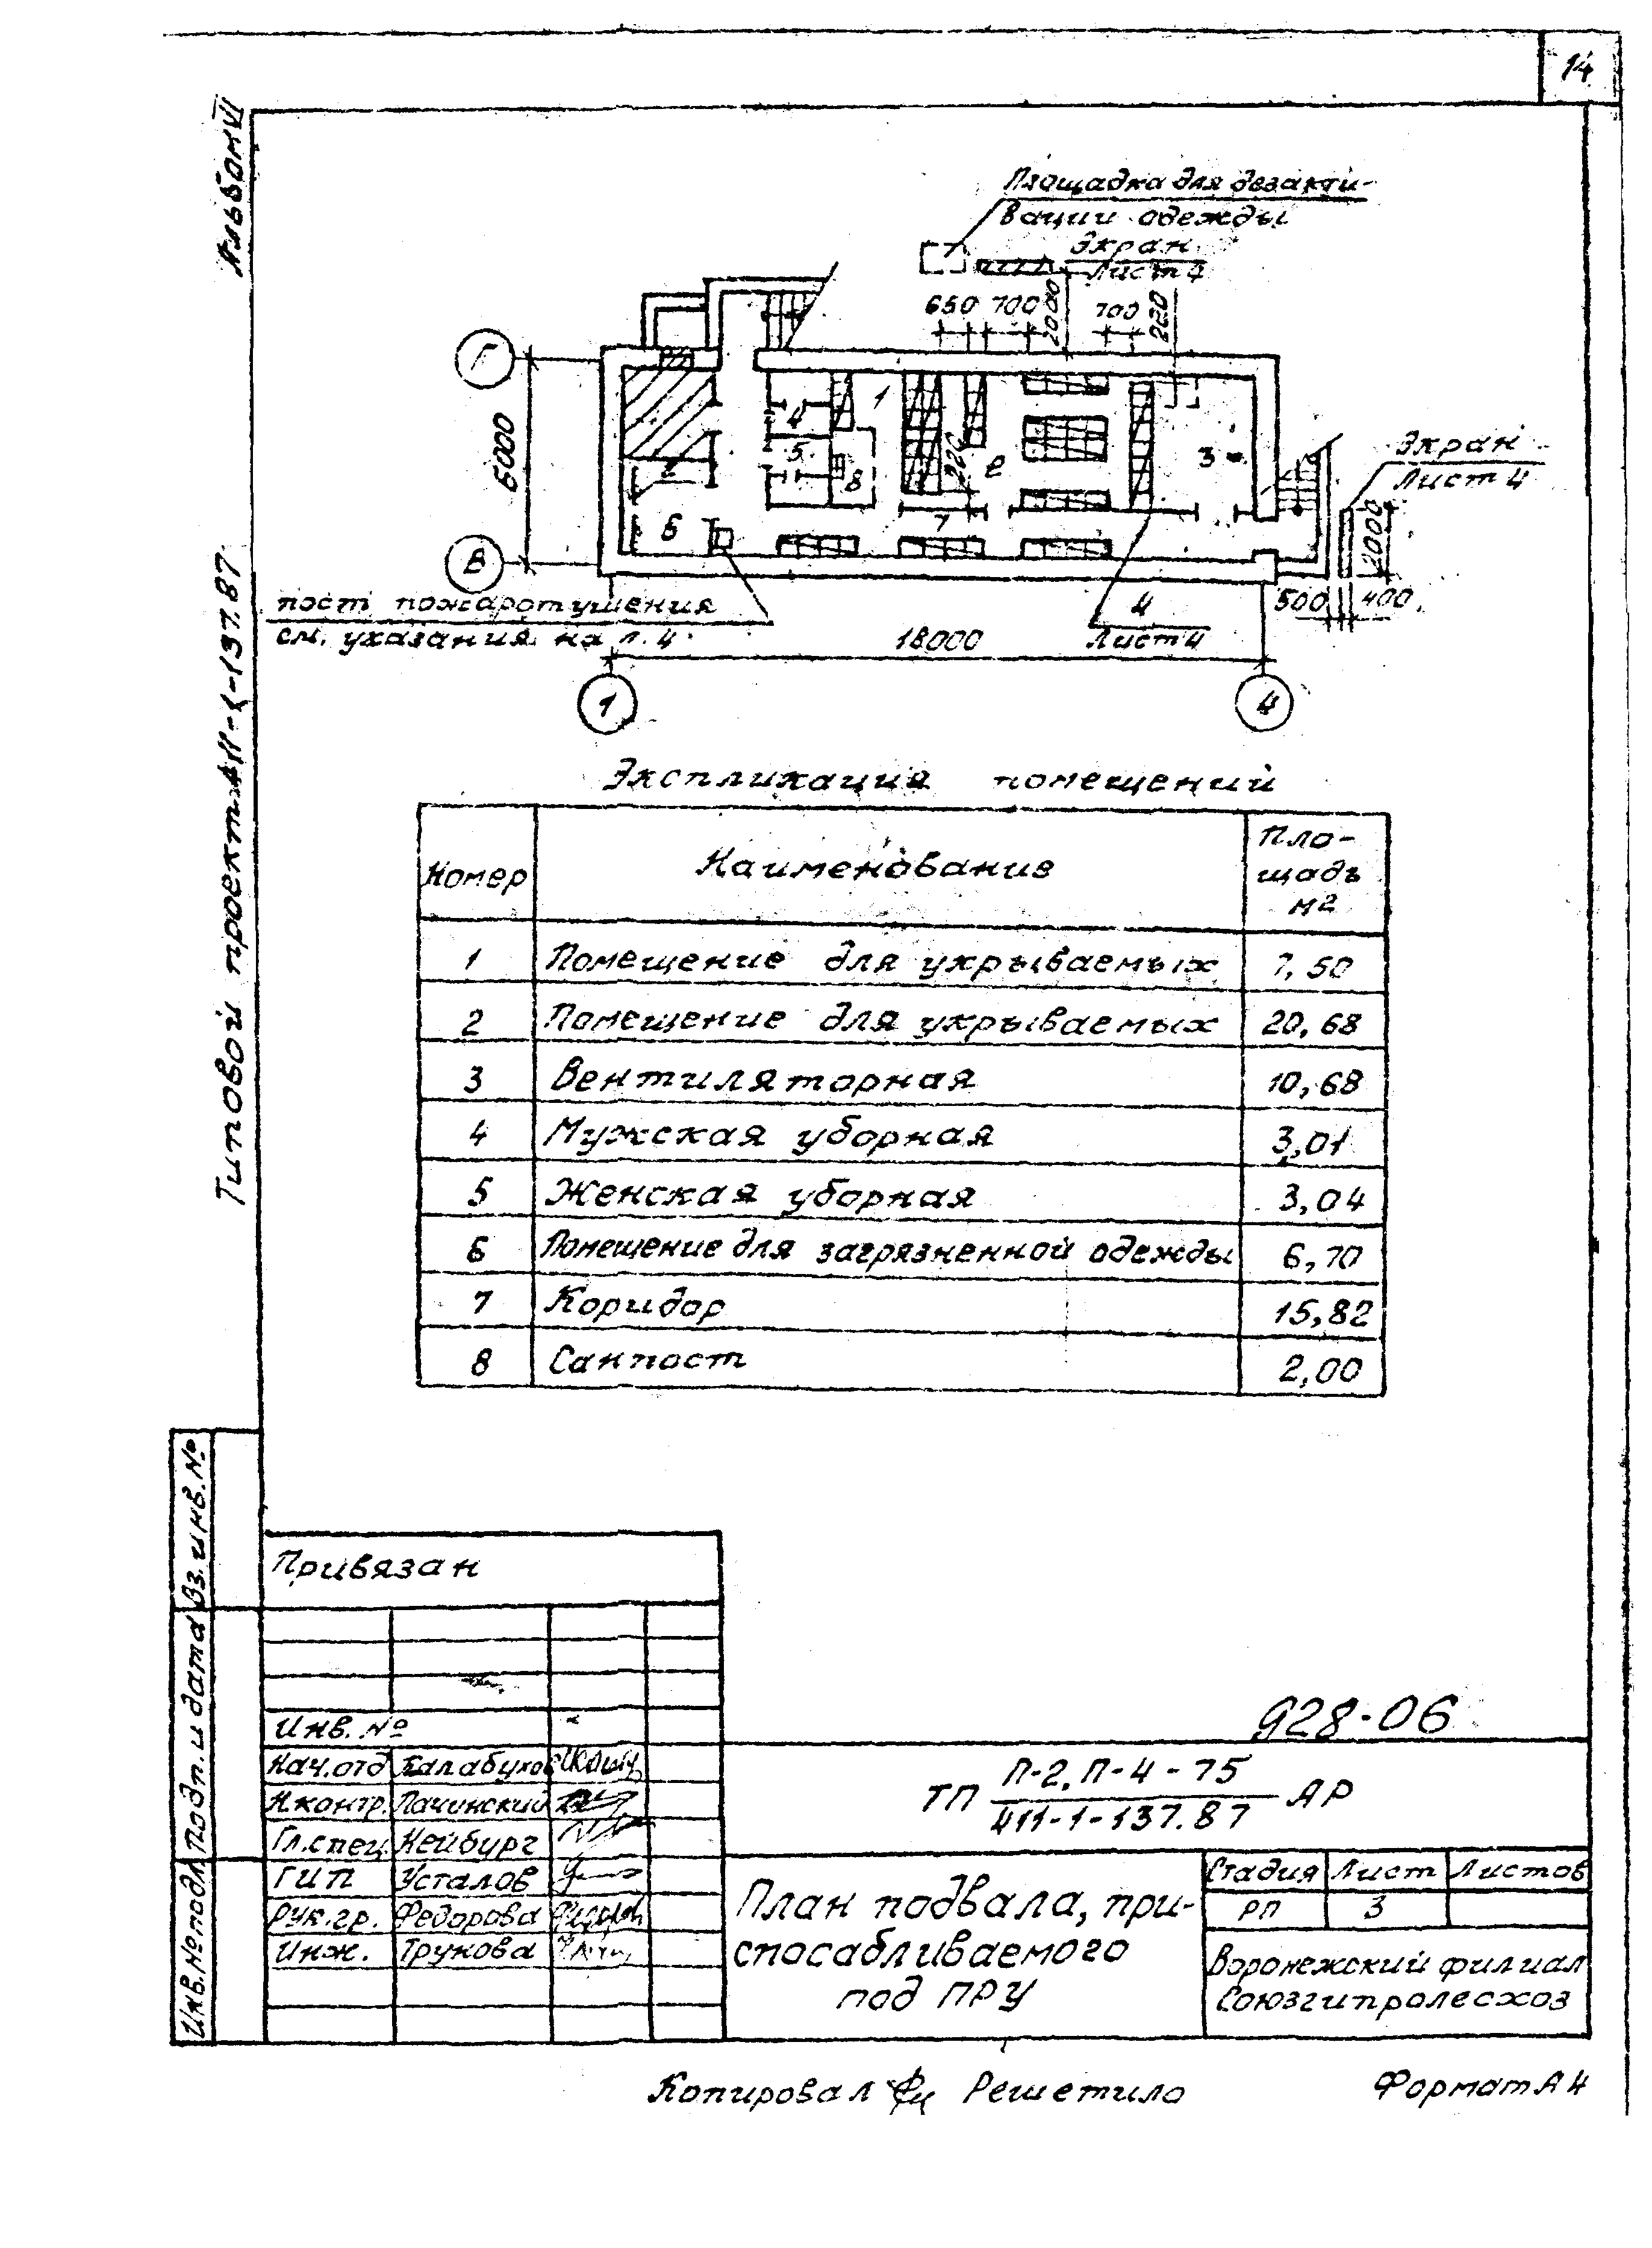 14
Альбом VI
Типовой проект 411-1-137.87
Площадка для дезакти-
вации одежды
Экран
Лист 4
650 700 2000 700 220
Г
6000
В
1
4
5
8
220
2
3
6
7
Экран
Лист 4
2000
500 400
пост пожаротушения
см. указания на л. 4
4
Лист 4
18000
1 4
Экспликация помещений
Номер Наименование Пло-
щадь
м2
1 Помещение для укрываемых 7,50
2 Помещение для укрываемых 20,68
3 Вентиляторная 10,68
4 Мужская уборная 3,01
5 Женская уборная 3,04
6 Помещение для загрязненной одежды 6,70
7 Коридор 15,82
8 Санпост 2,00
Вз. инв. №
Подп. и дата
Инв. № подл.
Привязан
Инв. №
Нач. отд Калабухов
Н контр. Пачинский
Гл. спец Нейбург
ГИП Усталов
Рук. гр. Федорова
Инж. Трунова
928-06
ТП П-2, П-4-75 АР
411-1-137.87
План подвала, при-
спосабливаемого
под ПРУ
Стадия Лист Листов
РП 3
Воронежский филиал
Союзгипролесхоз
Копировал Решетило
Формат А4